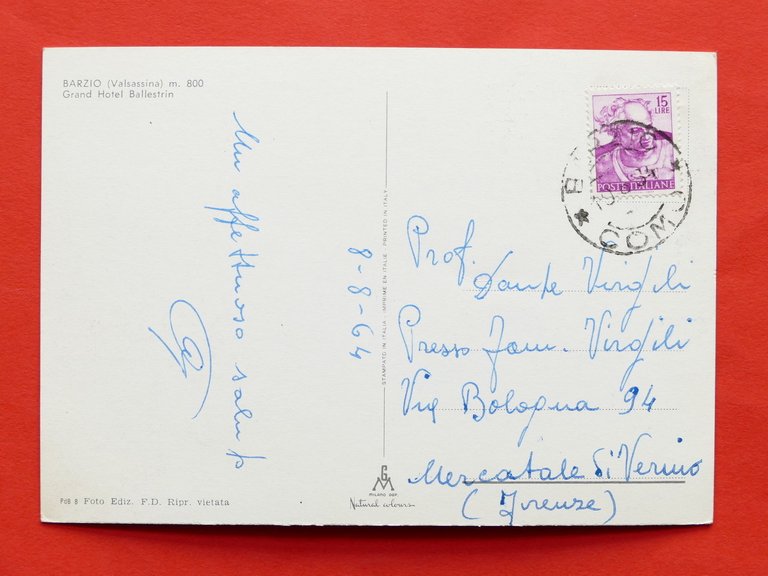 BARZIO (Valsassina) m. 800
Grand Hotel Ballestrin
Un affettuoso saluto
8-8-64
STAMPATO IN ITALIA - IMPRIME EN ITALIE - PRINTED IN ITALY
15
LIRE
POSTE ITALIANE
BARZIO
COMO
Prof.
Dante Virgili
Presso Fam. Virgili
Via Bologna 94
Mercatale di Vernio
(Firenze)
GM
MILANO DEP.
Natural colours
PdB 8 Foto Ediz. F.D. Ripr. vietata